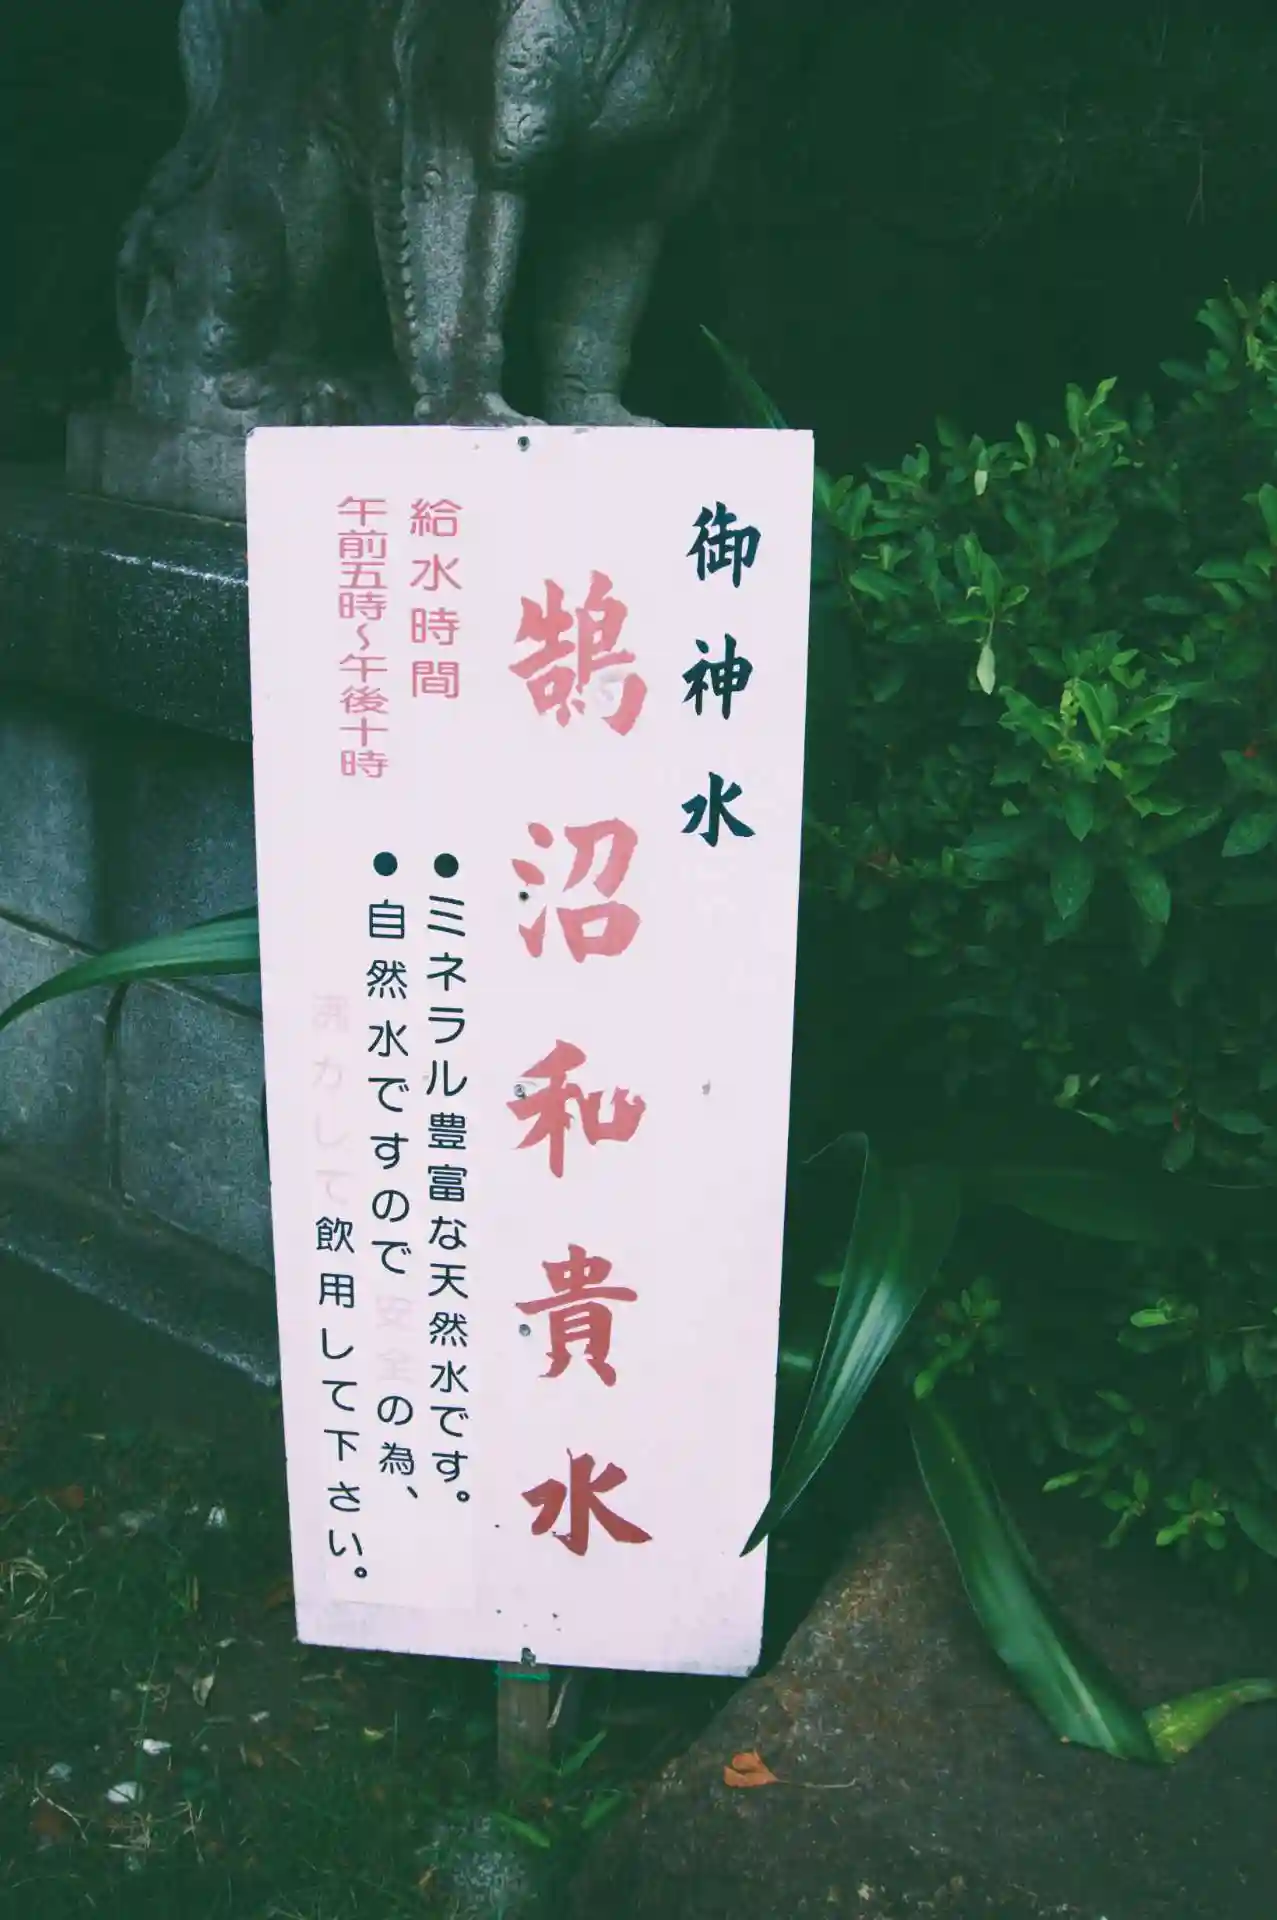 御神水
鵠沼和貴水
給水時間
午前五時～午後十時
●ミネラル豊富な天然水です。
●自然水ですので安全の為、
沸かして飲用して下さい。